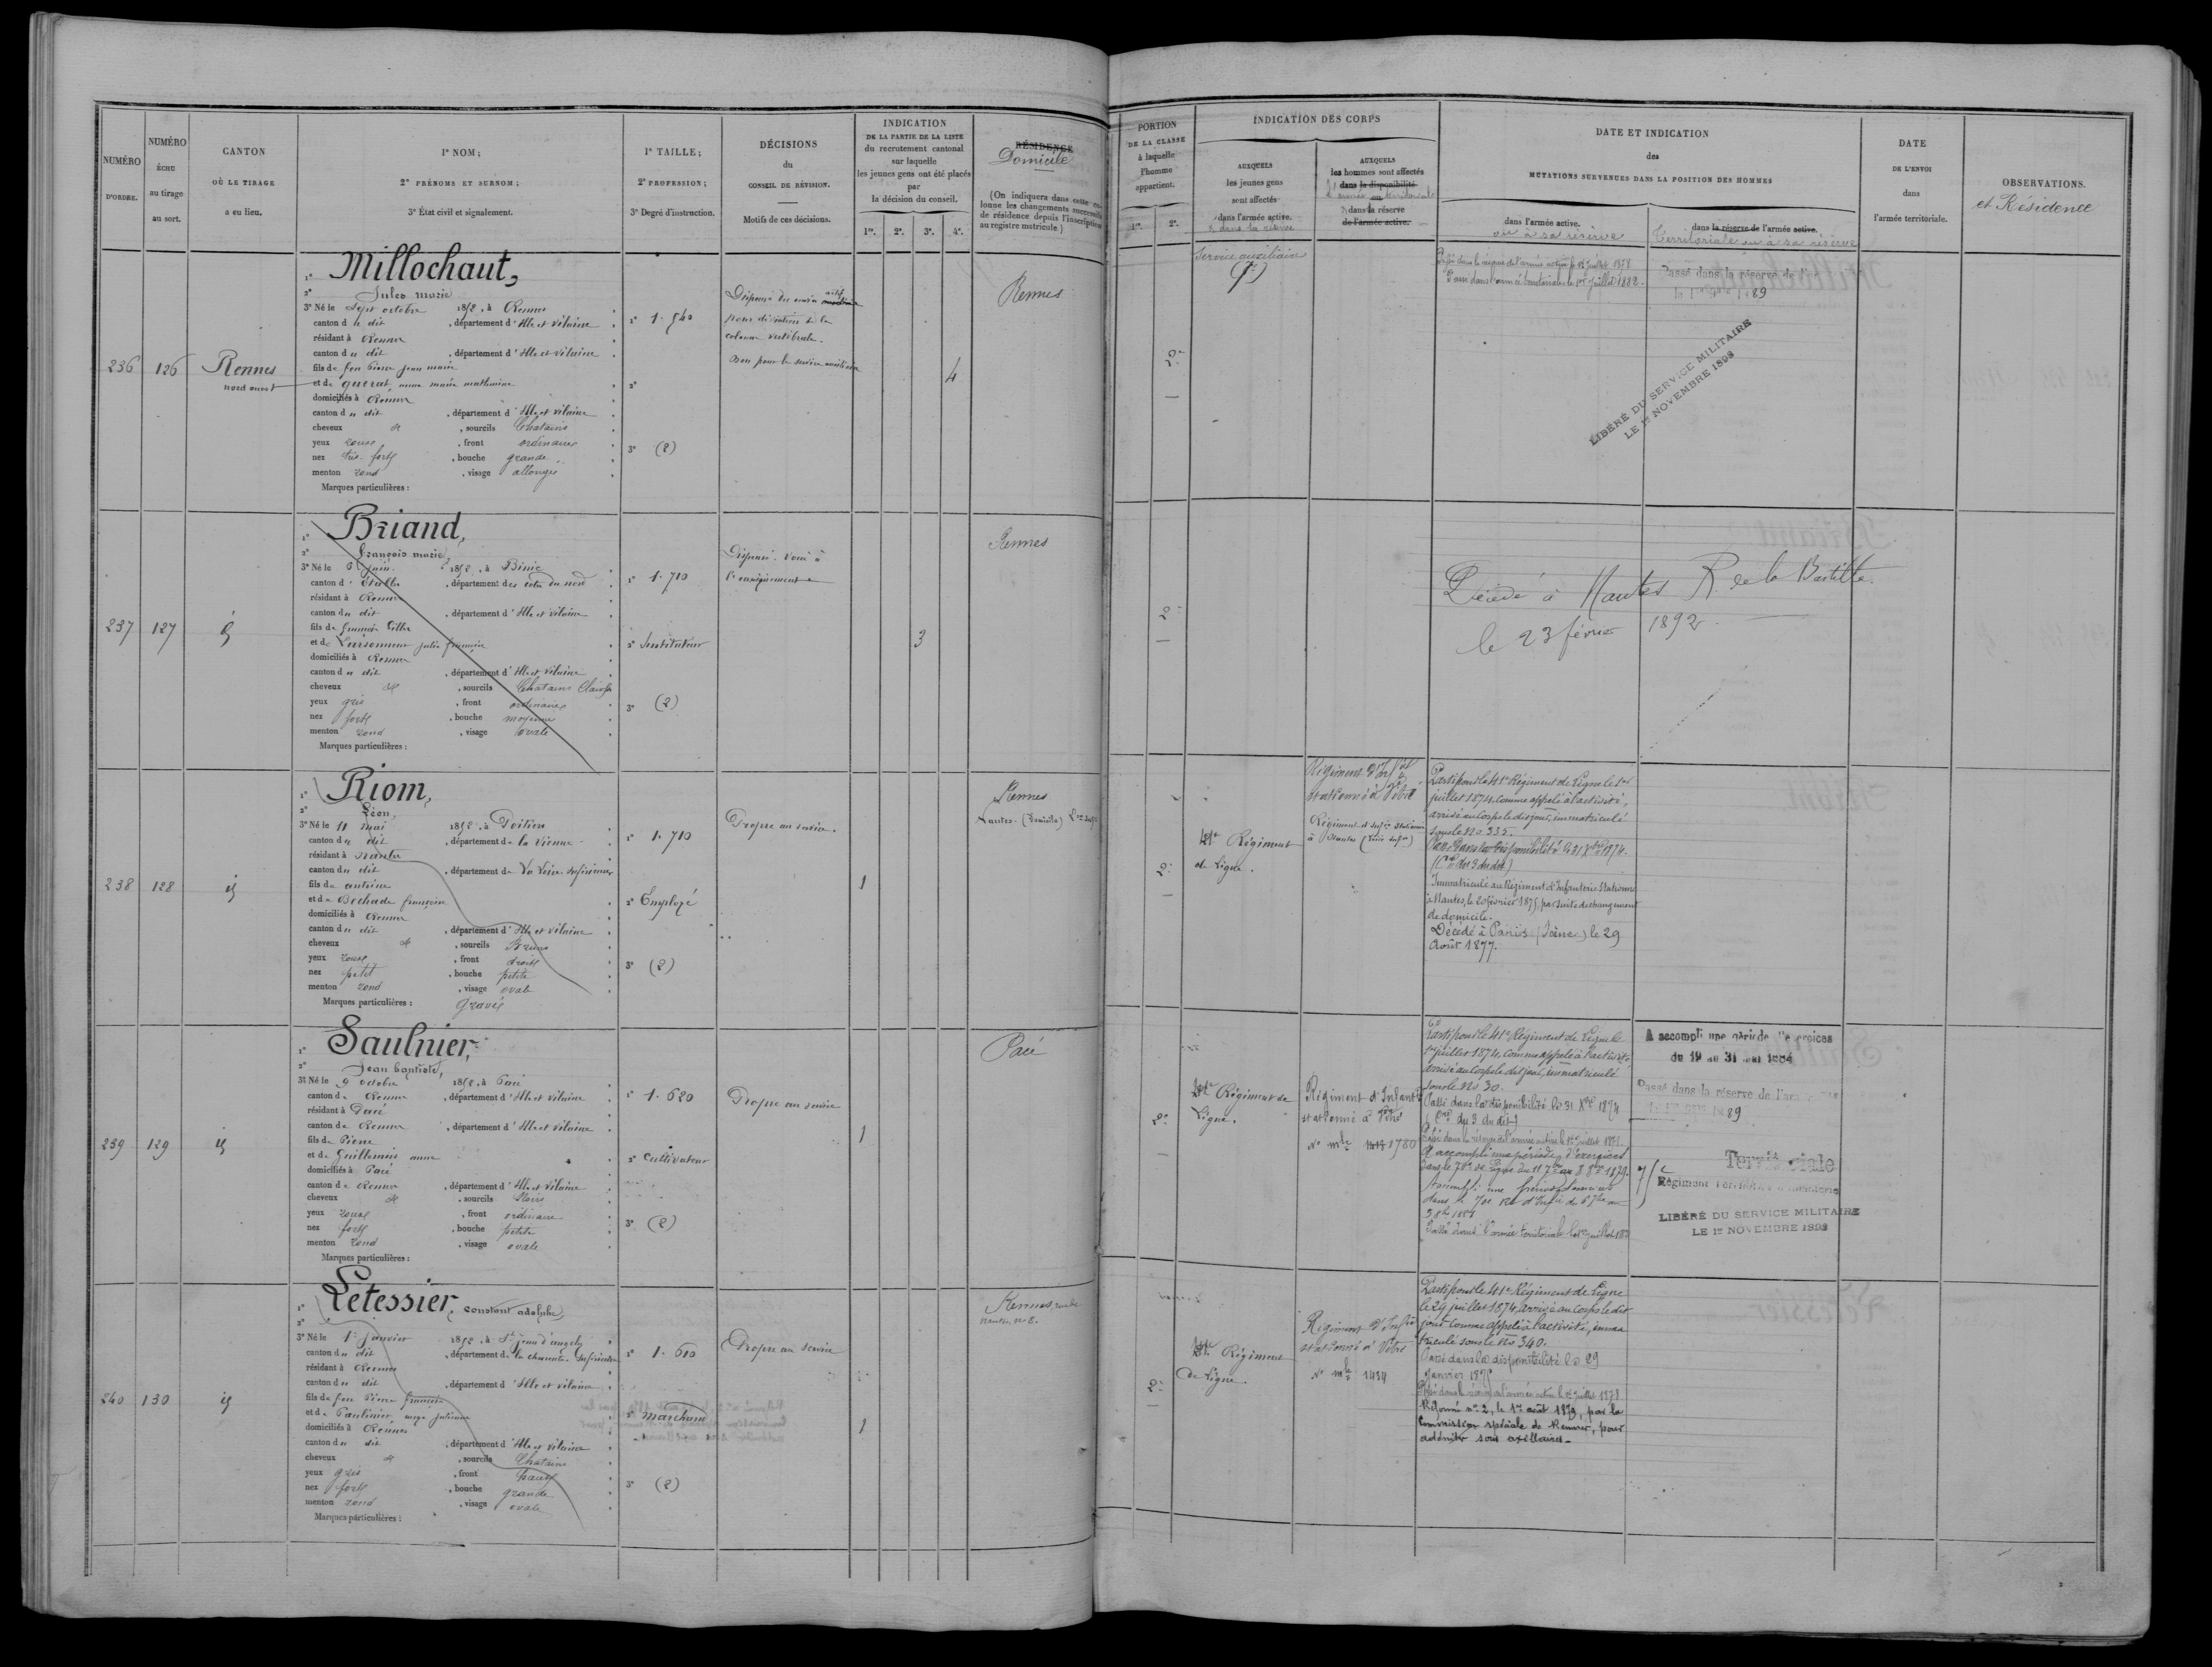 NUMÉRO
D'ORDRE.
NUMÉRO
ÉCHU
au tirage
au sort.
CANTON
OÙ LE TIRAGE
a eu lieu.
1º NOM;
2º PRÉNOMS ET SURNOM;
3º État civil et signalement.
1º TAILLE;
2º PROFESSION;
3º Degré d'instruction.
DÉCISIONS
du
CONSEIL DE RÉVISION.
Motifs de ces décisions.
INDICATION
DE LA PARTIE DE LA LISTE
du recrutement cantonal
sur laquelle
les jeunes gens ont été placés
par
la décision du conseil.
1re. 2e. 3e. 4e.
RÉSIDENCE
Domicile
(On indiquera dans cette colonne
les changements successifs
de résidence depuis l'inscription
au registre matricule.)
236
126
Rennes
nord ouest
1º Millochaut,
2º Jules marie
3º Né le Sept octobre 1852, à Rennes
canton du dit, département d'Ille et Vilaine
résidant à Rennes
canton du dit, département d'Ille et Vilaine
fils de feu Pierre Jean marie
et de guerat, anne marie mathurine
domiciliés à Rennes
canton du dit, département d'Ille et Vilaine
cheveux et, sourcils Chatains
yeux roux, front ordinaire
nez très fort, bouche grande
menton rond, visage allongé
Marques particulières :
1º 1.540
2º
3º (2)
Dispensé du service actif
pour déviation de la
colonne vertébrale.
Bon pour le service auxiliaire
4
Rennes
237
127
id
1º Briand,
2º François marie,
3º Né le 6 Juin 1852, à Binic
canton d'Etables, département des côtes du nord
résidant à Rennes
canton du dit, département d'Ille et Vilaine
fils de françois
et de julie françoise
domiciliés à Rennes
canton du dit, département d'Ille et Vilaine
cheveux et, sourcils Chatains Clairs
yeux gris, front ordinaire
nez fort, bouche moyenne
menton rond, visage ovale
Marques particulières :
1º 1.710
2º Instituteur
3º (2)
Dispensé. Voué à
l'enseignement
3
Rennes
238
128
id
1º Riom,
2º Léon,
3º Né le 11 mai 1852, à Poitiers
canton du dit, département de la Vienne
résidant à Nantes
canton du dit, département de La Loire Inférieure
fils de antoine
et de Bechade françoise
domiciliés à Rennes
canton du dit, département d'Ille et Vilaine
cheveux et, sourcils Bruns
yeux roux, front droit
nez petit, bouche petite
menton rond, visage ovale
Marques particulières : Gravé
1º 1.710
2º Employé
3º (2)
Propre au service.
1
Rennes
Nantes (Domicile) Lre Infre
239
129
id
1º Saulnier,
2º Jean baptiste,
3º Né le 9 octobre 1852, à Pacé
canton de Rennes, département d'Ille et Vilaine
résidant à Pacé
canton de Rennes, département d'Ille et Vilaine
fils de Pierre
et de Guillemois anne
domiciliés à Pacé
canton de Rennes, département d'Ille et Vilaine
cheveux et, sourcils Noirs
yeux roux, front ordinaire
nez fort, bouche petite
menton rond, visage ovale
Marques particulières :
1º 1.620
2º Cultivateur
3º (2)
Propre au service
1
Pacé
240
130
id
1º Letessier, Constant adolphe,
2º
3º Né le 1er Janvier 1852, à St jean d'angely
canton du dit, département de la charente Inférieure
résidant à Rennes
canton du dit, département d'Ille et Vilaine
fils de feu Pierre françois
et de Paulinier julienne
domiciliés à Rennes
canton du dit, département d'Ille et Vilaine
cheveux et, sourcils Chatains
yeux gris, front haut
nez fort, bouche grande
menton rond, visage ovale
Marques particulières :
1º 1.610
2º marchand
3º (2)
Propre au service
1
Rennes, rue de
nantes nº 8.
PORTION
DE LA CLASSE
à laquelle
l'homme
appartient.
1re. 2e.
INDICATION DES CORPS
AUXQUELS
les jeunes gens
sont affectés
dans l'armée active.
& dans la réserve
AUXQUELS
les hommes sont affectés
dans la disponibilité
l'armée territoriale
ou
dans la réserve
de l'armée active.
DATE ET INDICATION
des
MUTATIONS SURVENUES DANS LA POSITION DES HOMMES
dans l'armée active.
ou à sa réserve
dans la réserve de l'armée active.
Territoriale ou à sa réserve
DATE
DE L'ENVOI
dans
l'armée territoriale.
OBSERVATIONS.
et Résidence
2e
Service auxiliaire
Passé dans la réserve de l'armée active le 1er juillet 1878
Passé dans l'armée territoriale le 1er juillet 1882.
Passé dans la réserve de l'ar
LIBÉRÉ DU SERVICE MILITAIRE
LE 1er NOVEMBRE 1898
2e
Décédé à Nantes R. de la Bastille.
le 23 février 1892
2e
41e Régiment
de Ligne.
Régiment d'Infie
stationné à Vitré
Régiment d'Infie stationné
à Nantes (Loire Infre)
Parti pour le 41e Régiment de Ligne le 1er
juillet 1874, comme appelé à l'activité,
arrivé au Corps le dit jour, immatriculé
sous le No 335.
Passé dans la disponibilité le 31 Xbre 1874.
( du 3 du dit)
Immatriculé au Régiment d'Infanterie Stationné
à Nantes, le 20 février 1875, par suite de changement
de domicile.
Décédé à Paris (Seine) le 29
Août 1877.
2e
41e Régiment de
Ligne.
Régiment d'Infanterie
stationné à Vitré
No mle 1780
Parti pour le 41e Régiment de Ligne le
1er juillet 1874, comme appelé à l'activité,
arrivé au Corps le dit jour, immatriculé
sous le No 30.
Passé dans la disponibilité le 31 Xbre 1874
( du 3 du dit)
Passé dans la réserve de l'armée active le 1er juillet 1878.
A accompli une période d'exercices
dans le 70e de Ligne du 11 7bre au 8 8bre 1879.
A accompli une période d'exercices
dans le 70e Rt d'Infie du 6 7bre au
3 8bre 1881
Passé dans l'armée territoriale le 1er juillet 1882
A accompli une période d'exercices
du 19 au 31 mai 1884
Passé dans la réserve de l'armée
Territoriale
75e
Régiment Territorial d'Infanterie
LIBÉRÉ DU SERVICE MILITAIRE
LE 1er NOVEMBRE 1898
2e
41e Régiment
de Ligne.
Régiment d'Infie
stationné à Vitré
No mle 1434
Parti pour le 41e Régiment de Ligne
le 29 juillet 1874, arrivé au Corps le dit
jour comme appelé à l'activité, imma
triculé sous le No 340.
Passé dans la disponibilité le 29
Janvier 1875
Passé dans la réserve de l'armée active le 1er juillet 1878
Réformé no 2, le 1er août 1879, par la
Commission spéciale de Rennes, pour
adénite sous axillaires.